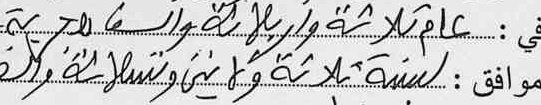 في : عام ثلاثة وأربعمائة والف هجرية
موافق : لسنة ثلاثة وثمانين وتسعمائة وألف